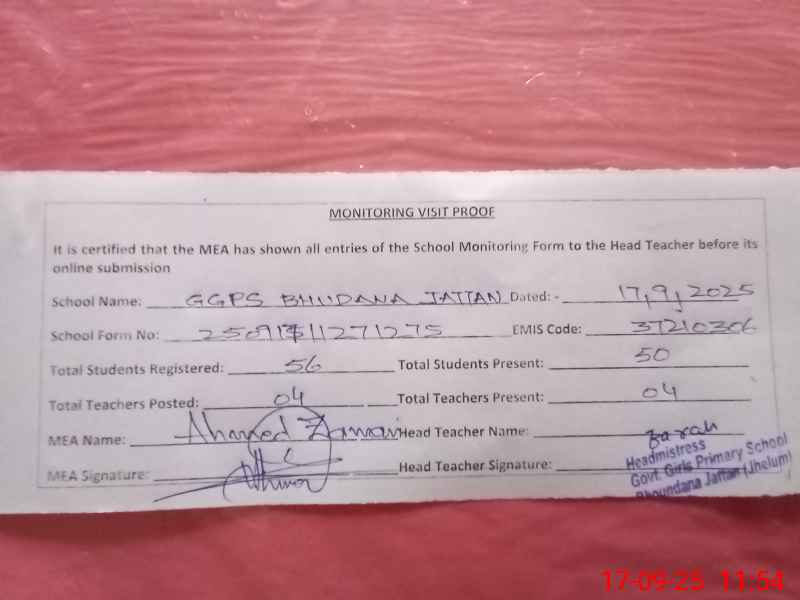 MONITORING VISIT PROOF
It is certified that the MEA has shown all entries of the School Monitoring Form to the Head Teacher before its
online submission
School Name: GGPS BHUDANA JATTAN Dated: - 17,9,2025
School Form No: EMIS Code: 37210306
Total Students Registered: 56 Total Students Present: 50
Total Teachers Posted: 04 Total Teachers Present: 04
MEA Name: Ahmed Zaman Head Teacher Name: Farah
MEA Signature: Head Teacher Signature:
Headmistress
Govt. Girls Primary School
Bhoundana Jattan (Jhelum)
17-09-25 11:54